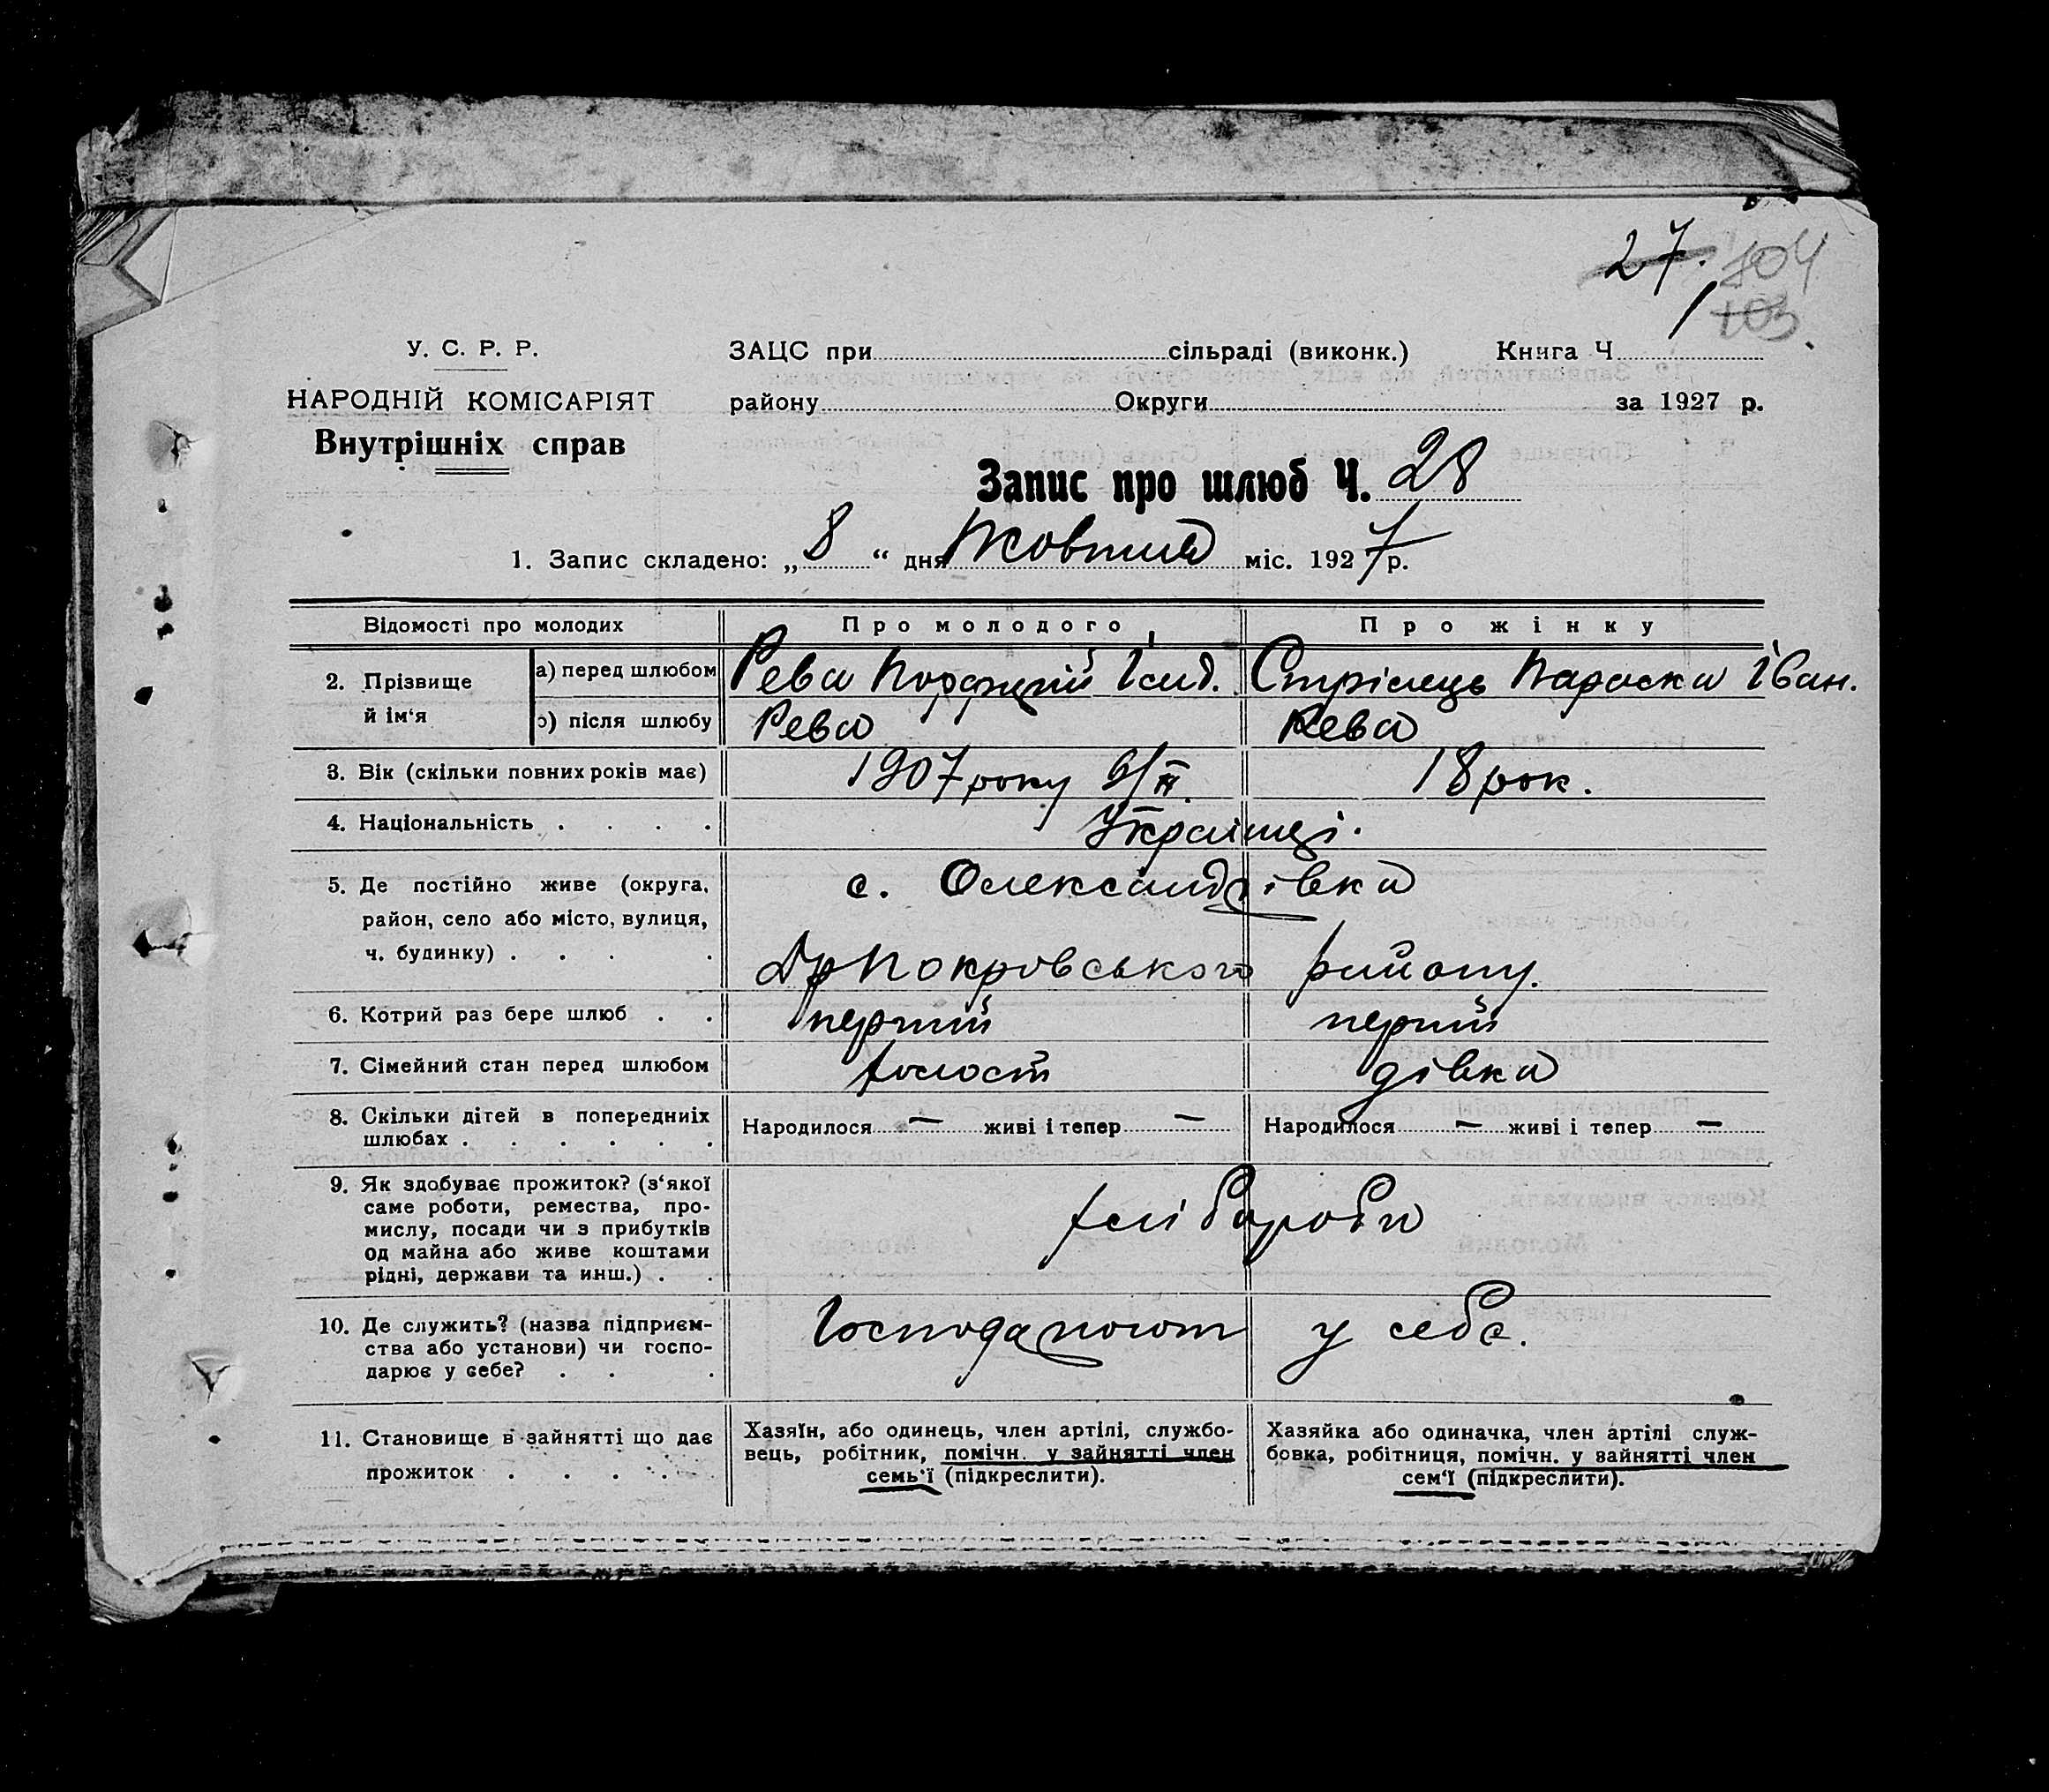 27. 104
103
У. С. Р. Р.
НАРОДНІЙ КОМІСАРІЯТ
Внутрішніх справ
ЗАЦС при сільраді (виконк.) Книга Ч
району Округи за 1927 р.
Запис про шлюб Ч. 28
1. Запис складено: „8“ дня Жовтня міс. 1927 р.
Відомості про молодих Про молодого Про жінку
2. Прізвище й ім‘я а) перед шлюбом Рева Сид. Стрілець Параска Іван.
б) після шлюбу Рева Рева
3. Вік (скільки повних років має) 1907 року 18 рок.
4. Національність . . . . Українці.
5. Де постійно живе (округа, с. Олександрівка
район, село або місто, вулиця,
ч. будинку) . . . . Покровського району.
6. Котрий раз бере шлюб . . перший перший
7. Сімейний стан перед шлюбом холост дівка
8. Скільки дітей в попередниіх
шлюбах . . . . . . Народилося — живі і тепер — Народилося — живі і тепер —
9. Як здобуває прожиток? (з‘якої
саме роботи, ремества, про-
мислу, посади чи з прибутків
од майна або живе коштами
рідні, держави та инш.) . . хлібороби
10. Де служить? (назва підприєм-
ства або установи) чи госпо-
дарює у себе? . . . Господарюют у себе.
11. Становище в зайнятті що дає
прожиток . . . . .
Хазяїн, або одинець, член артілі, службо-
вець, робітник, помічн. у зайнятті член
семь‘ї (підкреслити).
Хазяйка або одиначка, член артілі служ-
бовка, робітниця, помічн. у зайнятті член
сем‘ї (підкреслити).